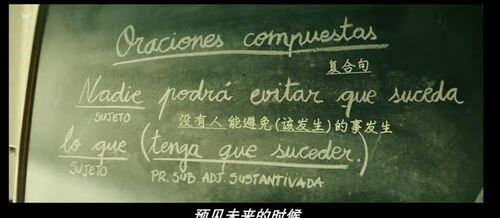 Oraciones compuestas
复合句
Nadie podrá evitar que suceda
SUJETO
没有人能避免(该发生)的事发生
lo que (tenga que suceder.)
SUJETO
PR. SUB. ADJ. SUSTANTIVADA
预见未来的时候